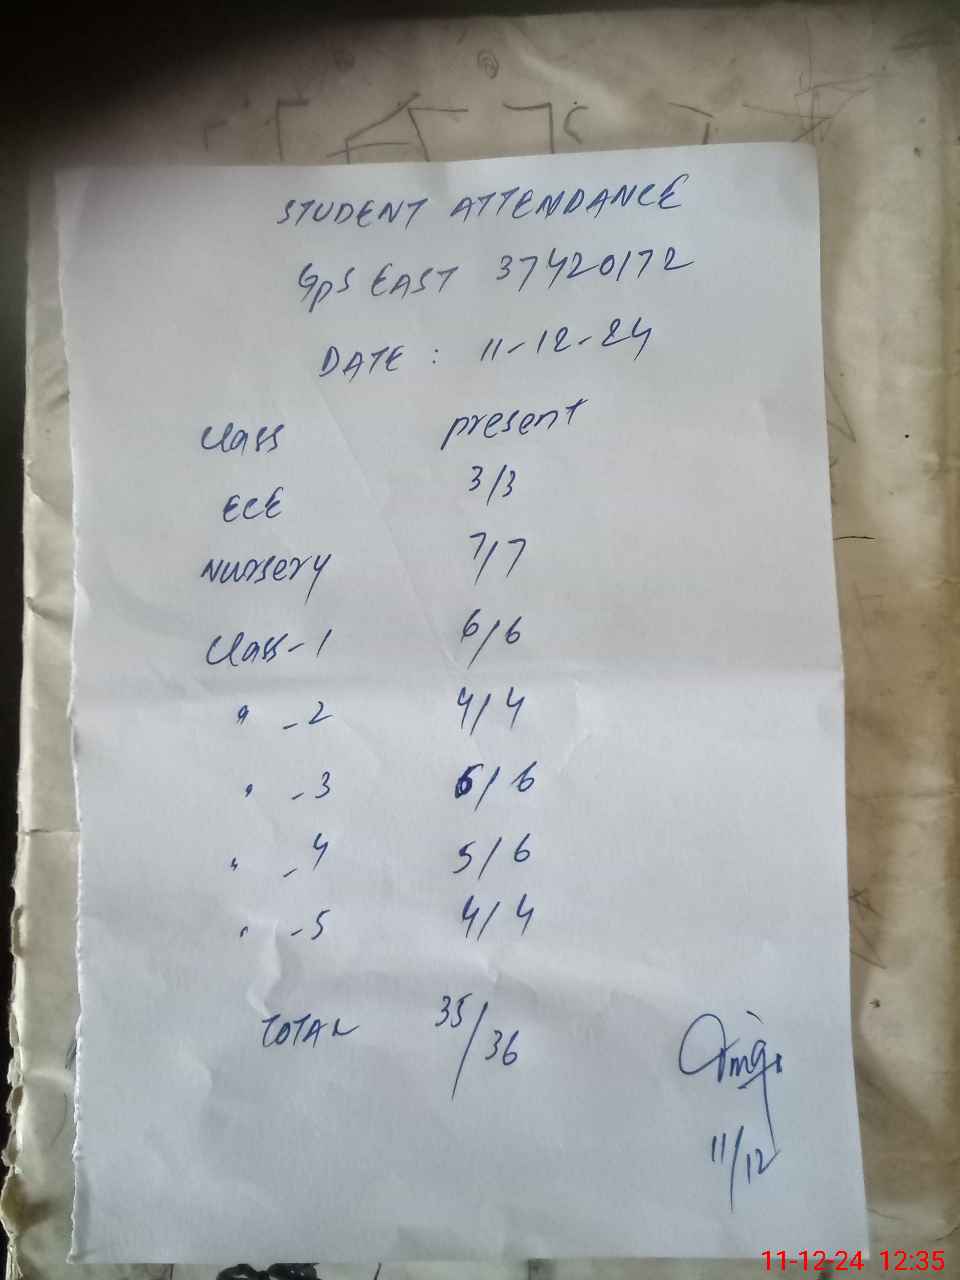 STUDENT ATTENDANCE
GPS EAST 37420172
DATE : 11-12-24
Class present
ECE 3/3
Nursery 7/7
Class-1 6/6
" -2 4/4
" -3 6/6
" -4 5/6
" -5 4/4
TOTAL 35/36
11/12
11-12-24 12:35